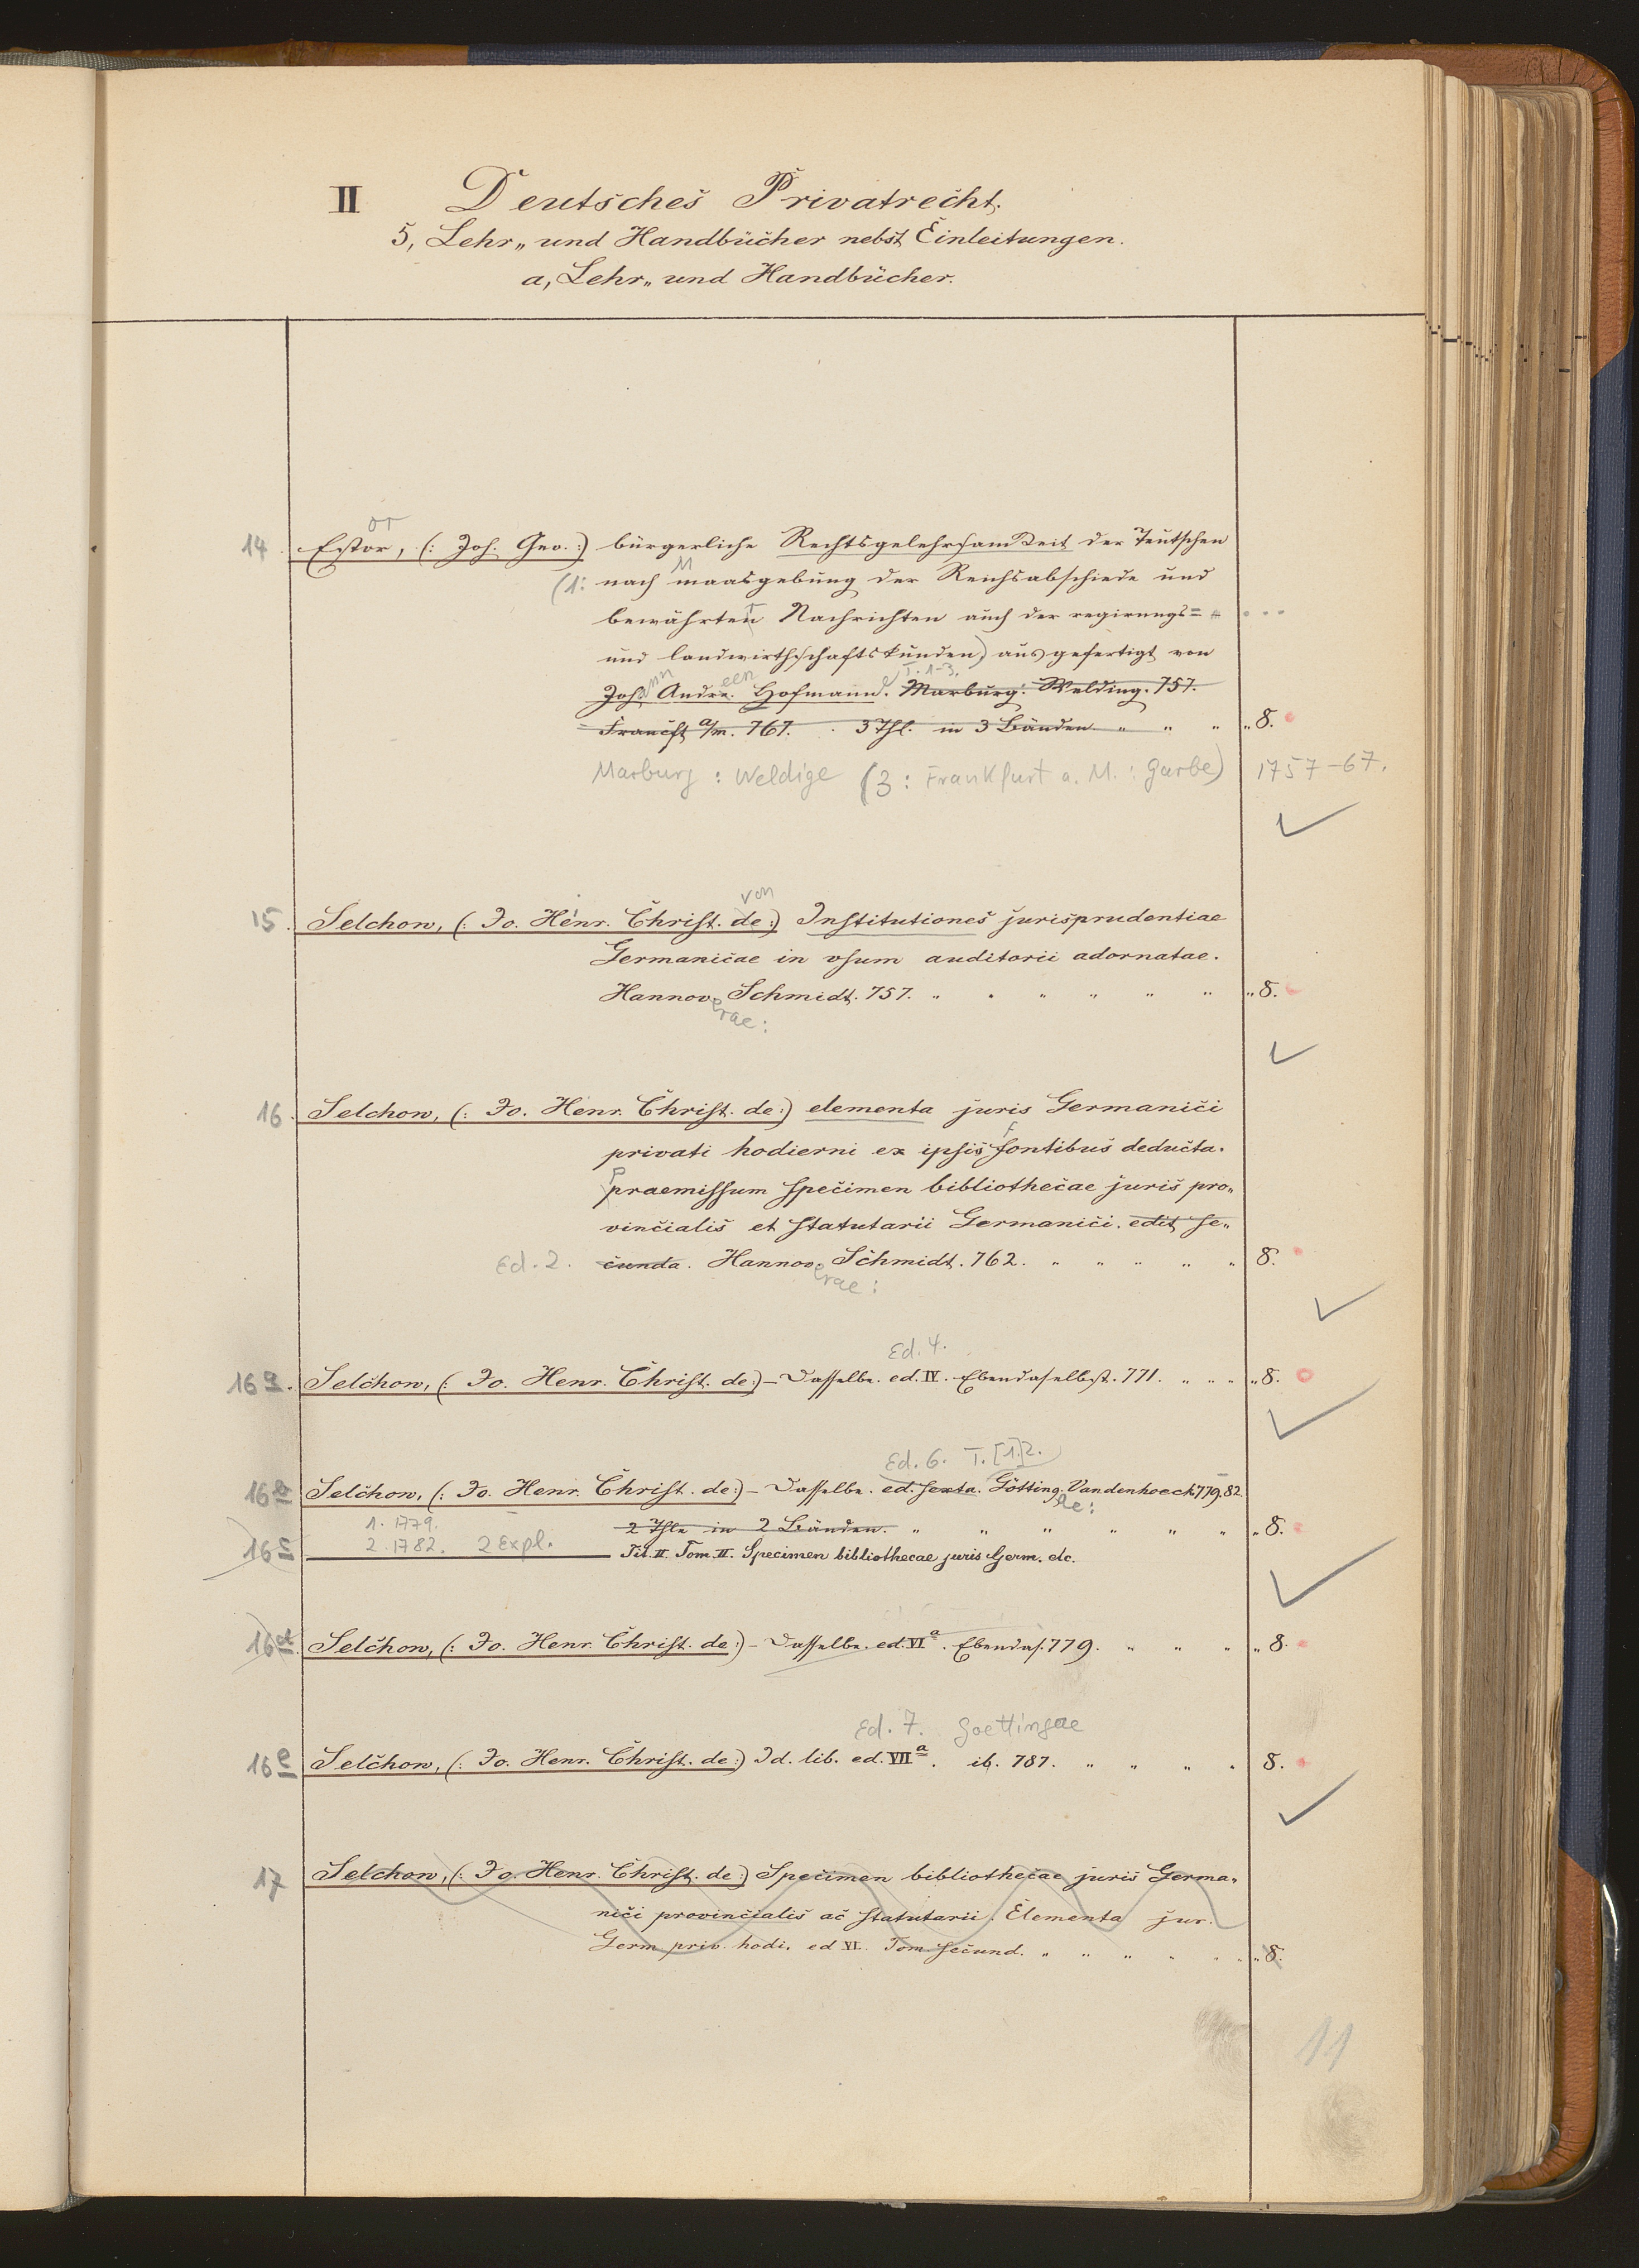 II Deutsches Privatrecht.
5, Lehr„ und Handbücher nebst Einleitungen.
a, Lehr„ und Handbücher.
or
14 Estor, (: Joh. Geo. :) bürgerliche Rechtsgelehrsamkeit der Teutschen
(1: nach M maasgebung der Reichsabschiede und
bewährten Nachrichten auch der regirungs= ...
und landwirthschaftskunden) aus gefertigt von
nn een T. 1-3.
Joh. Andre. Hofmann. Marburg. Welding. 757.
Francft a/m. 767. 3 Thl. in 3 Bänden „ „ „ „ 8.
Marburg : Weldige (3 : Frankfurt a. M. : Garbe) 1757-67.
von
15. Selchow, (: Jo. Henr. Christ. de :) Institutiones jurisprudentiae
Germanicae in vsum auditorii adornatae.
Hannov. Schmidt. 757. „ „ „ „ „ „ „ 8.
erae:
16. Selchow, (: Jo. Henr. Christ. de :) elementa juris Germanici
privati hodierni ex ipsis fontibus deducta.
praemissum specimen bibliothecae juris pro„
vincialis et statutarii Germanici. edit se„
Ed. 2. cunda. Hannov. Schmidt. 762. „ „ „ „ „ 8.
erae:
Ed. 4.
16a. Selchow, (: Jo. Henr. Christ. de :) – Dasselbe. ed. IV. Ebendaselbst. 771. „ „ „ „ 8.
Ed. 6. T. [1.]2.
16b Selchow, (: Jo. Henr. Christ. de :) – Dasselbe. ed. sexta. Götting. Vandenhoeck 779.82.
ae:
1. 1779. 2 Thle in 2 Bänden. „ „ „ „ „ „ „ 8.
16c 2. 1782. 2 Expl. Tit. II. Tom. II. Specimen bibliothecae juris Germ. etc.
16d. Selchow, (: Jo. Henr. Christ. de :) – Dasselbe. ed. VIa. Ebendas. 779. „ „ „ „ 8.
Ed. 7. Goettingae
16e Selchow, (: Jo. Henr. Christ. de :) Id. lib. ed. VIIa. ib. 787. „ „ „ „ 8.
17 Selchow, (: Jo. Henr. Christ. de :) Specimen bibliothecae juris Germa„
nici provincialis ac statutarii. Elementa jur.
Germ priv. hodi. ed VI. Tom secund. „ „ „ „ „ „ „ 8.
11